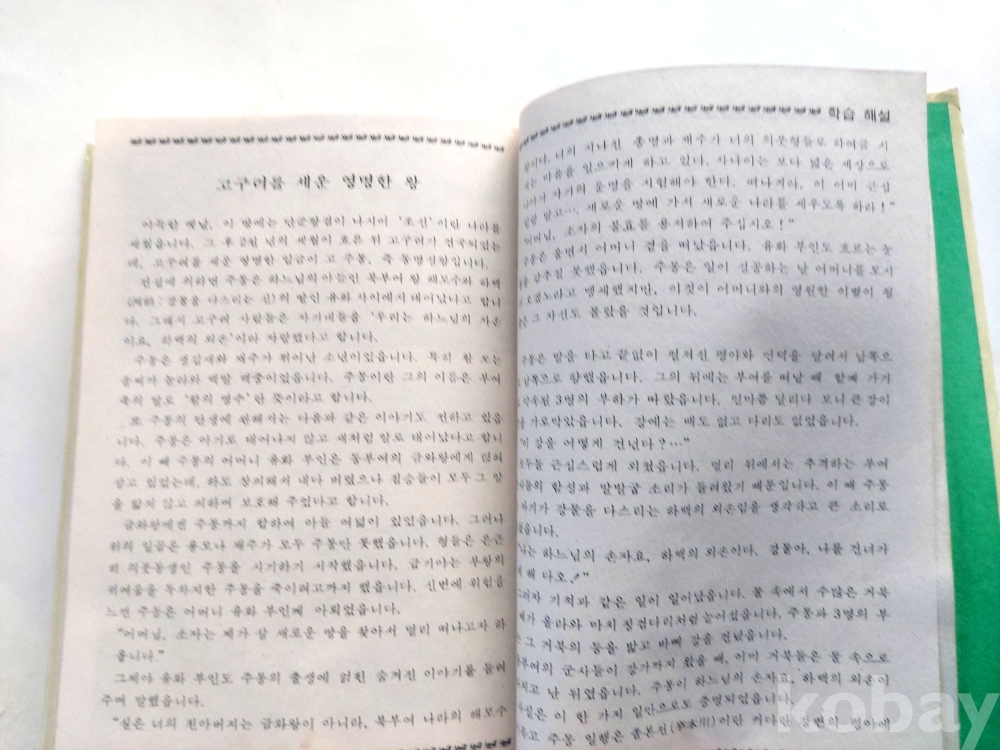 고구려를 세운 영명한 왕
아득한 옛날, 이 땅에는 단군왕검이 나시어 '조선'이란 나라를
세웠읍니다. 그 후 2천 년의 세월이 흐른 뒤 고구려가 건국되었는
데, 고구려를 세운 영명한 임금이 고 주몽, 즉 동명성왕입니다.
전설에 의하면 주몽은 하느님의 아들인 북부여 왕 해모수와 하백
(河伯 : 강물을 다스리는 신)의 딸인 유화 사이에서 태어났다고 합니
다. 그래서 고구려 사람들은 자기네들을 '우리는 하느님의 자손
이요, 하백의 외손'이라 자랑했다고 합니다.
주몽은 생김새와 재주가 뛰어난 소년이었읍니다. 특히 활 쏘는
솜씨가 놀라와 백발 백중이었읍니다. 주몽이란 그의 이름은 부여
족의 말로 '활의 명수'란 뜻이라고 합니다.
또 주몽의 탄생에 관해서는 다음과 같은 이야기도 전하고 있읍
니다. 주몽은 아기로 태어나지 않고 새처럼 알로 태어났다고 합니
다. 이 때 주몽의 어머니 유화 부인은 동부여의 금와왕에게 얹혀
살고 있었는데, 하도 상서해서 내다 버렸으나 짐승들이 모두 그 알
을 밟지 않고 피하며 보호해 주었다고 합니다.
금와왕에겐 주몽까지 합하여 아들 여덟이 있었읍니다. 그러나
위의 일곱은 용모나 재주가 모두 주몽만 못했읍니다. 형들은 은근
히 의붓동생인 주몽을 시기하기 시작했읍니다. 급기야는 부왕의
귀여움을 독차지한 주몽을 죽이려고까지 했읍니다. 신변에 위험을
느낀 주몽은 어머니 유화 부인께 아뢰었읍니다.
"어머님, 소자는 제가 살 새로운 땅을 찾아서 멀리 떠나고자 하
옵니다."
그제야 유화 부인도 주몽의 출생에 얽힌 숨겨진 이야기를 들려
주며 말했읍니다.
"실은 너의 친아버지는 금와왕이 아니라, 북부여 나라의 해모수
학습 해설
님이다. 너의 지나친 총명과 재주가 너의 의붓형들로 하여금 시
는 마음을 일으키게 하고 있다. 사나이는 보다 넓은 세상으로
나아가 자기의 운명을 시험해야 한다. 떠나거라, 이 어미 근심
일랑 말고…, 새로운 땅에 가서 새로운 나라를 세우도록 하라!"
"어머님, 소자의 불효를 용서하여 주십시오!"
주몽은 울면서 어머니 곁을 떠났읍니다. 유화 부인도 흐르는 눈
을 감추질 못했읍니다. 주몽은 일이 성공하는 날 어머니를 모시
러 오겠노라고 맹세했지만, 이것이 어머니와의 영원한 이별이 될
은 그 자신도 몰랐을 것입니다.
주몽은 말을 타고 끝없이 펼쳐진 평야와 언덕을 달려서 남쪽으
남쪽으로 향했읍니다. 그의 뒤에는 부여를 떠날 때 함께 가기
약속된 3명의 부하가 따랐읍니다. 얼마쯤 달리다 보니 큰 강이
을 가로막았읍니다. 강에는 배도 없고 다리도 없었읍니다.
"이 강을 어떻게 건넌다?…"
모두들 근심스럽게 외쳤읍니다. 멀리 뒤에서는 추격하는 부여
사들의 함성과 말발굽 소리가 들려왔기 때문입니다. 이 때 주몽
자기가 강물을 다스리는 하백의 외손임을 생각하고 큰 소리로
었읍니다.
"나는 하느님의 손자요, 하백의 외손이다. 강물아, 나를 건너가
게 해 다오!"
그러자 기적과 같은 일이 일어났읍니다. 물 속에서 수많은 거북
떼가 올라와 마치 징검다리처럼 늘어섰읍니다. 주몽과 3명의 부
는 그 거북의 등을 밟고 바삐 강을 건넜읍니다.
부여의 군사들이 강가까지 왔을 때, 이미 거북들은 물 속으로
지고 난 뒤였읍니다. 주몽이 하느님의 손자요, 하백의 외손이
사실은 이 한 가지 일만으로도 증명되었읍니다.
주몽 일행은 졸본천(卒本川)이란 커다란 강변의 평야에
kobay